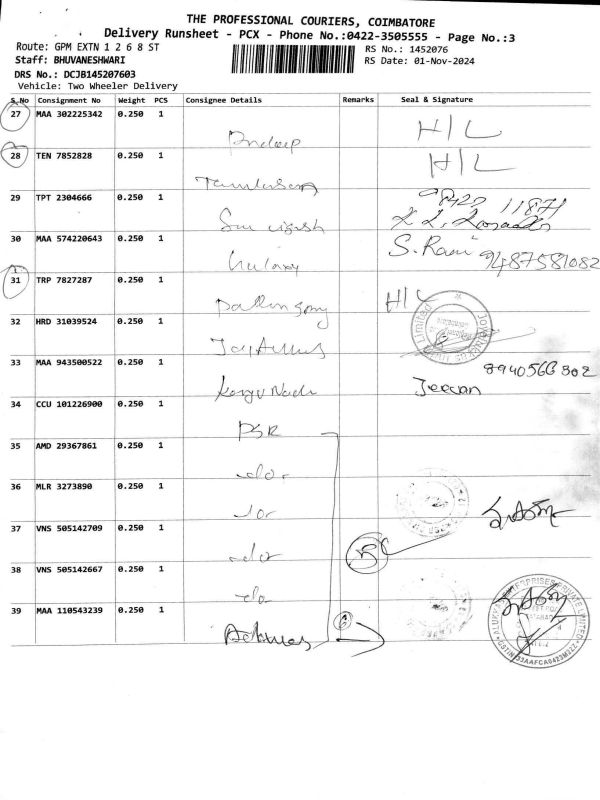 THE PROFESSIONAL COURIERS, COIMBATORE
Delivery Runsheet - PCX - Phone No.:0422-3505555 - Page No.:3
Route: GPM EXTN 1 2 6 8 ST
RS No.: 1452076
Staff: BHUVANESHWARI
RS Date: 01-Nov-2024
DRS No.: DCJB145207603
Vehicle: Two Wheeler Delivery
S.No Consignment No Weight PCS Consignee Details Remarks Seal & Signature
27 MAA 302225342 0.250 1
H/L
28 TEN 7852828 0.250 1
H/L
29 TPT 2304666 0.250 1
98420 11871
30 MAA 574220643 0.250 1
S. Rani 9487581082
31 TRP 7827287 0.250 1
H/L
32 HRD 31039524 0.250 1
33 MAA 943500522 0.250 1
8940566302
Jeevan
34 CCU 101226900 0.250 1
PSR
35 AMD 29367861 0.250 1
do
36 MLR 3273890 0.250 1
do
37 VNS 505142709 0.250 1
do
5
38 VNS 505142667 0.250 1
do
39 MAA 110543239 0.250 1
6